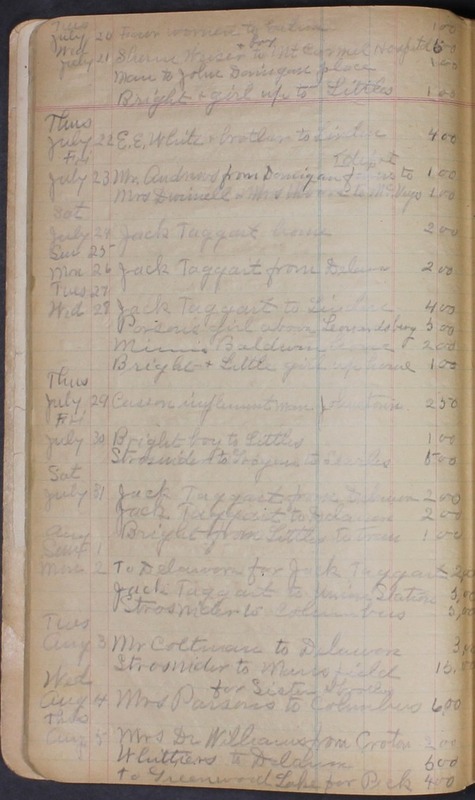 Tues
July 20 Four women to 100
Wed & boy
July 21 Sherm Weiser to Mt Carmel Hospital 6 00
Man to John Donigan place 1 00
Bright & girl up to Littles 1 00
Thus
July 22 E.E. White & brother to 4 00
Fri to depot
July 23 Mr. Andrews from Donigan farm to 1 00
Mrs Dwinell & Mrs to 1 00
Sat
July 24 Jack Taggart home 2 00
Sun 25
Mon 26 Jack Taggart from Delaware 2 00
Tues 27
Wed 28 Jack Taggart to 4 00
Parsons girl above Leonardsburg 3 00
Baldwin home 2 00
Bright & Little girl up home 1 00
Thus
July 29 implement man 2 50
Fri
July 30 Bright boy to Littles 1 00
Strosnider to 5 00
Sat
July 31 Jack Taggart from Delaware 2 00
Jack Taggart to Delaware 2 00
Bright from Littles to town 1 00
Aug
Sun 1
Mon 2 To Delaware for Jack Taggart 2 00
Jack Taggart to Union Station 5,00
Strosnider to Columbus 5,00
Tues
Aug 3 Mr Coltman to Delaware
Strosnider to Mansfield 15,00
Wed for Sister
Aug 4 Mrs Parsons to Columbus 6,00
Thus
Aug 5 Mrs Dr. Williams from Croton 2 00
Whittiers to Delaware 6 00
to Greenwood Lake for Beck 4 00